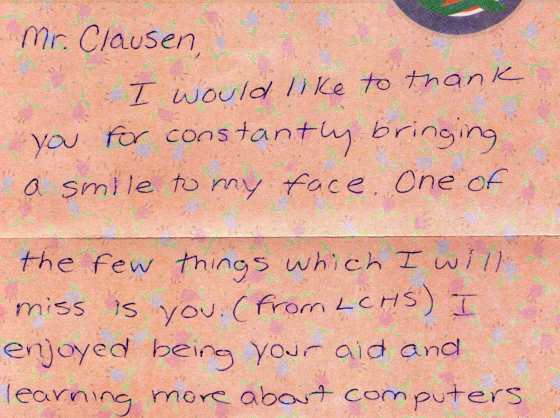 Mr. Clausen,
I would like to thank
you for constantly bringing
a smile to my face. One of
the few things which I will
miss is you. (from LCHS) I
enjoyed being your aid and
learning more about computers